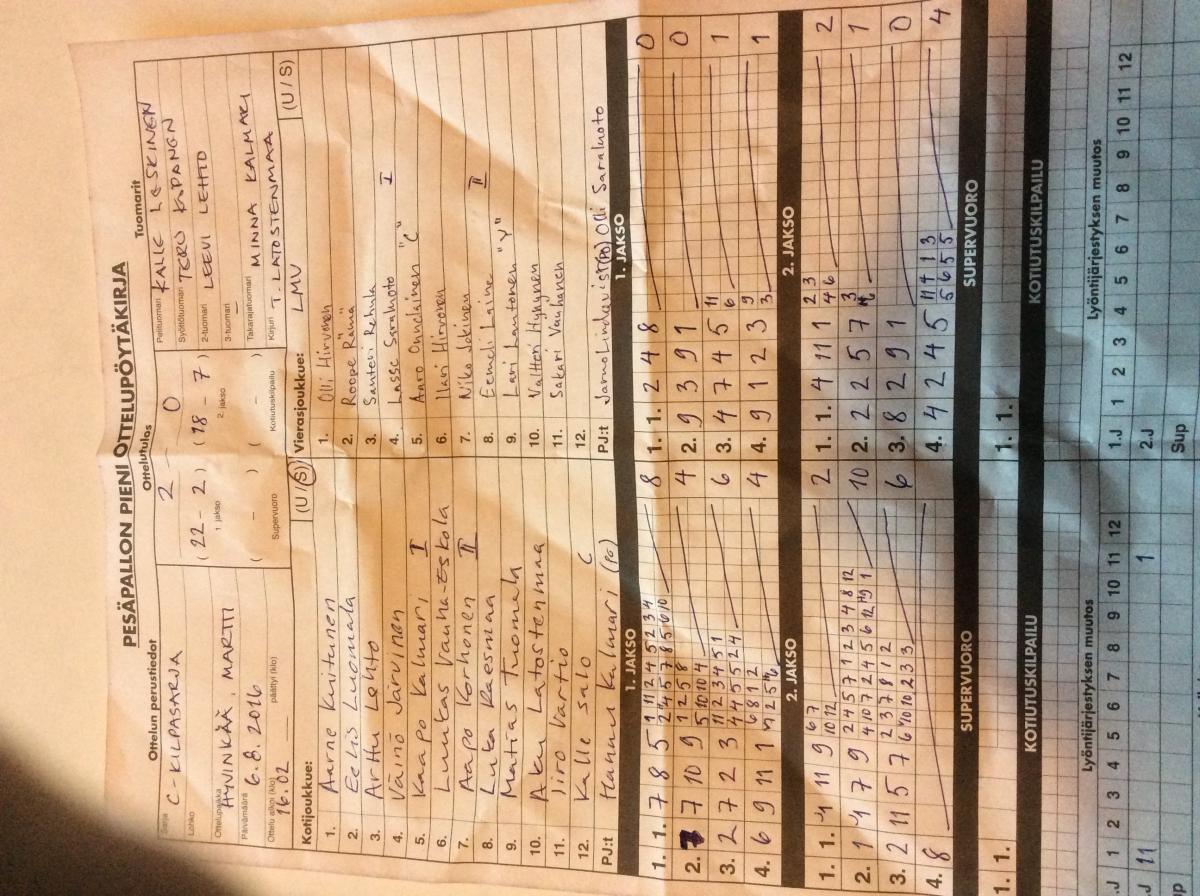 PESÄPALLON PIENI OTTELUPÖYTÄKIRJA
Ottelun perustiedot
Sarja C-KILPASARJA
Lohko
Ottelupaikka HYVINKÄÄ, MARTTI
Päivämäärä 6.8.2016
Ottelu alkoi (klo) 16.02 päättyi (klo)
Ottelutulos
2 – 0
(22 – 2) (18 – 7)
1 jakso 2 jakso
( – ) ( – )
Supervuoro Kotiutuskilpailu
Tuomarit
Pelituomari KALLE LESKINEN
Syöttötuomari
2-tuomari LEEVI LEHTO
3-tuomari –
Takarajatuomari MINNA KALMARI
Kirjuri T. LATOSTENMAA
Kotijoukkue: (U/S)
1. Aarne Kuitunen
2. Eelis Luomala
3. Arttu Lehto
4. Väinö Järvinen
5. Kaapo Kalmari I
6. Luukas Vauha-Eskola
7. Aapo Korhonen II
8. Luka Kaesmaa
9. Matias Tuomela
10. Aku Latostenmaa
11. Iiro Vartio
12. Kalle Salo C
PJ:t Hannu Kalmari (PO)
Vierasjoukkue: LMV (U/S)
1. Olli Hirvonen
2. Roope Rämä
3. Santeri Rehula
4. Lasse Saraluoto I
5. Aaro Onnelainen "C"
6. Ilari Hirvonen
7. Niko Jokinen II
8. Eemeli Laine
9. Lari Lautonen "V"
10. Valtteri Hyyrynen
11. Sakari Vauhanen
12.
PJ:t Jarno Lindqvist (PO) Olli Saraluoto
1. JAKSO 1. JAKSO
1. 1. 7 8 5 8
2. 7 10 9 4
3. 2 7 2 3 6
4. 6 9 11 1 4
1. 1. 2 4 8 0
2. 9 3 9 1 0
3. 4 7 4 5 11 6 1
4. 9 1 2 3 9 3 1
2. JAKSO 2. JAKSO
1. 1. 4 11 9 6 7 10 12 2
2. 1 4 7 9 10
3. 2 11 5 7 6
4. 8
1. 1. 4 11 1 2 3 4 6 2
2. 2 2 5 7 3 1
3. 8 2 9 1 0
4. 4 2 4 5 11 4 1 3 5 6 5 5 4
SUPERVUORO SUPERVUORO
1. 1. 1. 1.
KOTIUTUSKILPAILU KOTIUTUSKILPAILU
Lyöntijärjestyksen muutos Lyöntijärjestyksen muutos
.J 1 2 3 4 5 6 7 8 9 10 11 12
.J 11 1
up
1.J 1 2 3 4 5 6 7 8 9 10 11 12
2.J
Sup